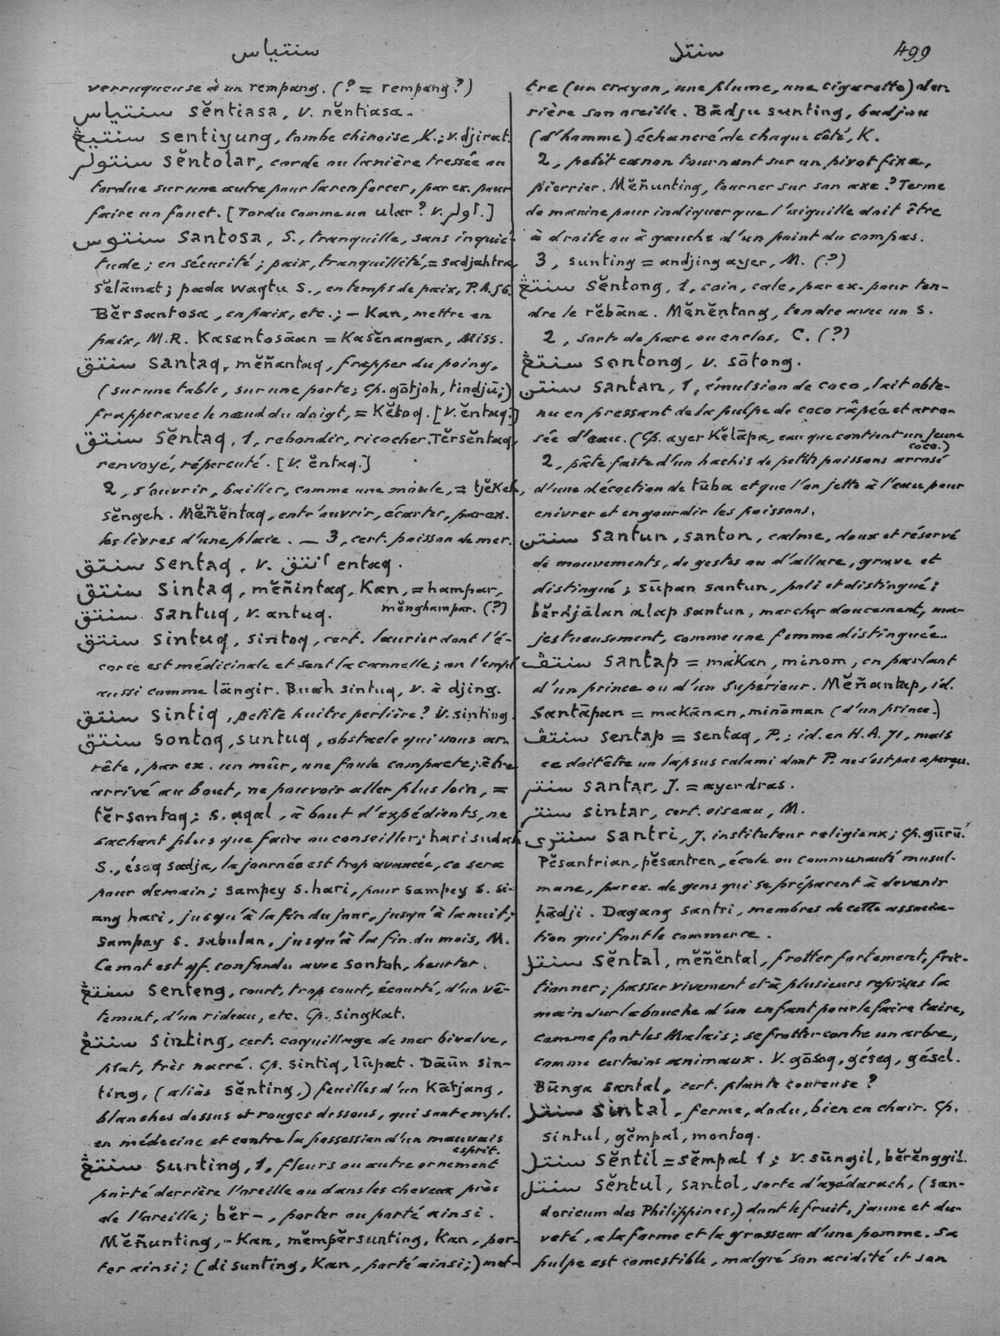 سنتياس
سنتل
499
verruqueuse à un rempang. (? = rempang?)
سنتياس sĕntiasa, v. nĕntiasa.
سنتيڠ sentiyung, tombe chinoise, K.; v. djirat.
سنتولر sĕntolar, corde ou lanière tressée ou
tordue sur une autre pour la renforcer, par ex. pour
faire un fouet. [Tordu comme un ular? v. اولر.]
سنتوس santosa, S., tranquille, sans inquié-
tude; en sécurité; paix, tranquillité, = sadjahtra,
sĕlāmat; pada waqtu s., en temps de paix, P.A. 56.
Bĕrsantosa, en paix, etc.; – Kan, mettre en
paix, M.R. Kasantosāan = Kasĕnangan, Miss.
سنتق santaq, mĕñantaq, frapper du poing,
(sur une table, sur une porte; cp. gōtjoh, tindjū;)
frapper avec le nœud du doigt, = Kĕtoq. [v. ĕntaq.]
سنتق sĕntaq, 1, rebondir, ricocher. Tĕrsĕntaq,
renvoyé, répercuté. [v. ĕntaq.]
2, s'ouvrir, bailler, comme une moule, = tjĕkeh,
sĕngeh. Mĕñĕntaq, entr'ouvrir, écarter, par ex.
les lèvres d'une plaie. — 3, cert. poisson de mer.
سنتق sentaq, v. انتق entaq.
سنتق sintaq, mĕñintaq, Kan, = hampar,
mĕnghampar. (?)
سنتق santuq, v. antuq.
سنتق sintuq, sintoq, cert. laurier dont l'é-
corce est médicinale et sent la cannelle; on l'empl.
aussi comme lāngir. Buah sintuq, v. à djing.
سنتق sintiq, petite huitre perlière? v. sinting.
سنتق sontoq, suntuq, obstacle qui vous ar-
rête, par ex. un mûr, une foule compacte; être
arrivé au bout, ne pouvoir aller plus loin, =
tĕrsontoq; s. aqal, à bout d'expédients, ne
sachant plus que faire ou conseiller; hari sudah
s., ésoq sadja, la journée est trop avancée, ce sera
pour demain; sampey s. hari, pour sampey s. si-
ang hari, jusqu'à la fin du jour, jusqu'à la nuit;
sampay s. sabulan, jusqu'à la fin du mois, M.
Ce mot est qf. confondu avec sontoh, heurter.
سنتڠ senteng, court, trop court, écourté, d'un vê-
tement, d'un rideau, etc. Cp. singkat.
سنتڠ sinting, cert. coquillage de mer bivalve,
plat, très nacré. Cp. sintiq, lūpat. Dāūn sin-
ting, (aliàs sĕnting,) feuilles d'un Kātjang,
blanches dessus et rouges dessous, qui sont empl.
en médecine et contre la possession d'un mauvais
esprit.
سنتڠ sunting, 1, fleurs ou autre ornement
porté derrière l'oreille ou dans les cheveux près
de l'oreille; bĕr–, porter ou porté ainsi.
Mĕñunting, – Kan, mĕmpĕrsunting, Kan, por-
ter ainsi; (di sunting, Kan, porté ainsi;) met-
tre (un crayon, une plume, une cigarette) der-
rière son oreille. Bādju sunting, badjou
(d'homme) échancré de chaque côté, K.
2, petit canon tournant sur un pivot fixe,
pierrier. Mĕñunting, tourner sur son axe? Terme
de marine pour indiquer que l'aiguille doit être
à droite ou à gauche d'un point du compas.
3, sunting = andjing ayer, M. (?)
سنتڠ sĕntong, 1, coin, cale, par ex. pour ten-
dre le rĕbāna. Mĕnĕntong, tendre avec un s.
2, sorte de parc ou enclos, C. (?)
سنتڠ sontong, v. sōtong.
سنتن santan, 1, émulsion de coco, lait obte-
nu en pressant de la pulpe de coco râpée et arro-
sée d'eau. (Cp. ayer Kĕlāpa, eau que contient un jeune
coco.)
2, pâte faite d'un hachis de petits poissons arrosé
d'une décoction de tūba et que l'on jette à l'eau pour
enivrer et engourdir les poissons.
سنتن santun, santon, calme, doux et réservé
de mouvements, de gestes ou d'allure, grave et
distingué; sūpan santun, poli et distingué;
bĕrdjālan alap santun, marcher doucement, ma-
jestueusement, comme une femme distinguée.
سنتڤ santap = makan, minom, en parlant
d'un prince ou d'un supérieur. Mĕñantap, id.
Santāpan = makānan, minōman (d'un prince.)
سنتڤ sentap = sentaq, P.; id. en H.A. 71, mais
ce doit être un lapsus calami dont P. ne s'est pas aperçu.
سنتر santar, J. = ayer dras.
سنتر sintar, cert. oiseau, M.
سنتري santri, J. instituteur religieux; cp. gūrū.
Pĕsantrian, pĕsantren, école ou communauté musul-
mane, par ex. de gens qui se préparent à devenir
ḥādji. Dagang santri, membres de cette associa-
tion qui font le commerce.
سنتل sĕntal, mĕñĕntal, frotter fortement, fric-
tionner; passer vivement et à plusieurs reprises la
main sur la bouche d'un enfant pour le faire taire,
comme font les Malais; se frotter contre un arbre,
comme certains animaux. V. gōsoq, géseq, gésel.
Būnga santal, cert. plante coureuse?
سنتل sintal, ferme, dodu, bien en chair. Cp.
sintul, gĕmpal, montoq.
سنتل sĕntil = sĕmpal 1; v. sūngil, bĕrĕnggil.
سنتل sĕntul, santol, sorte d'azédarach, (san-
doricum des Philippines,) dont le fruit, jaune et du-
veté, a la forme et la grosseur d'une pomme. Sa
pulpe est comestible, malgré son acidité et son